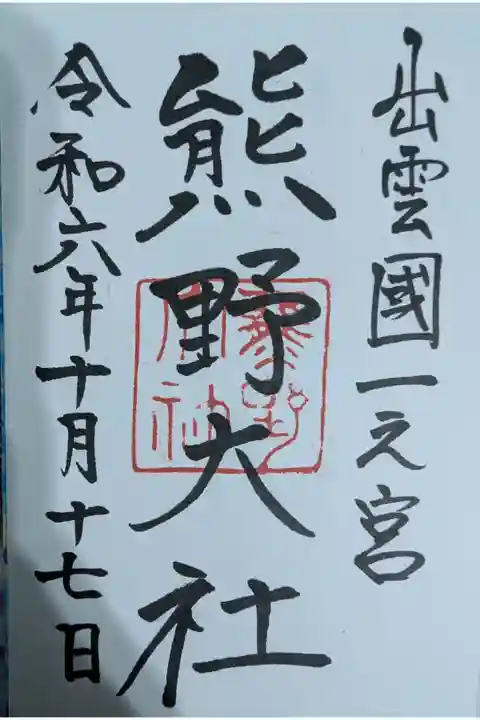 出雲國一之宮
熊野大社
令和六年十月十七日